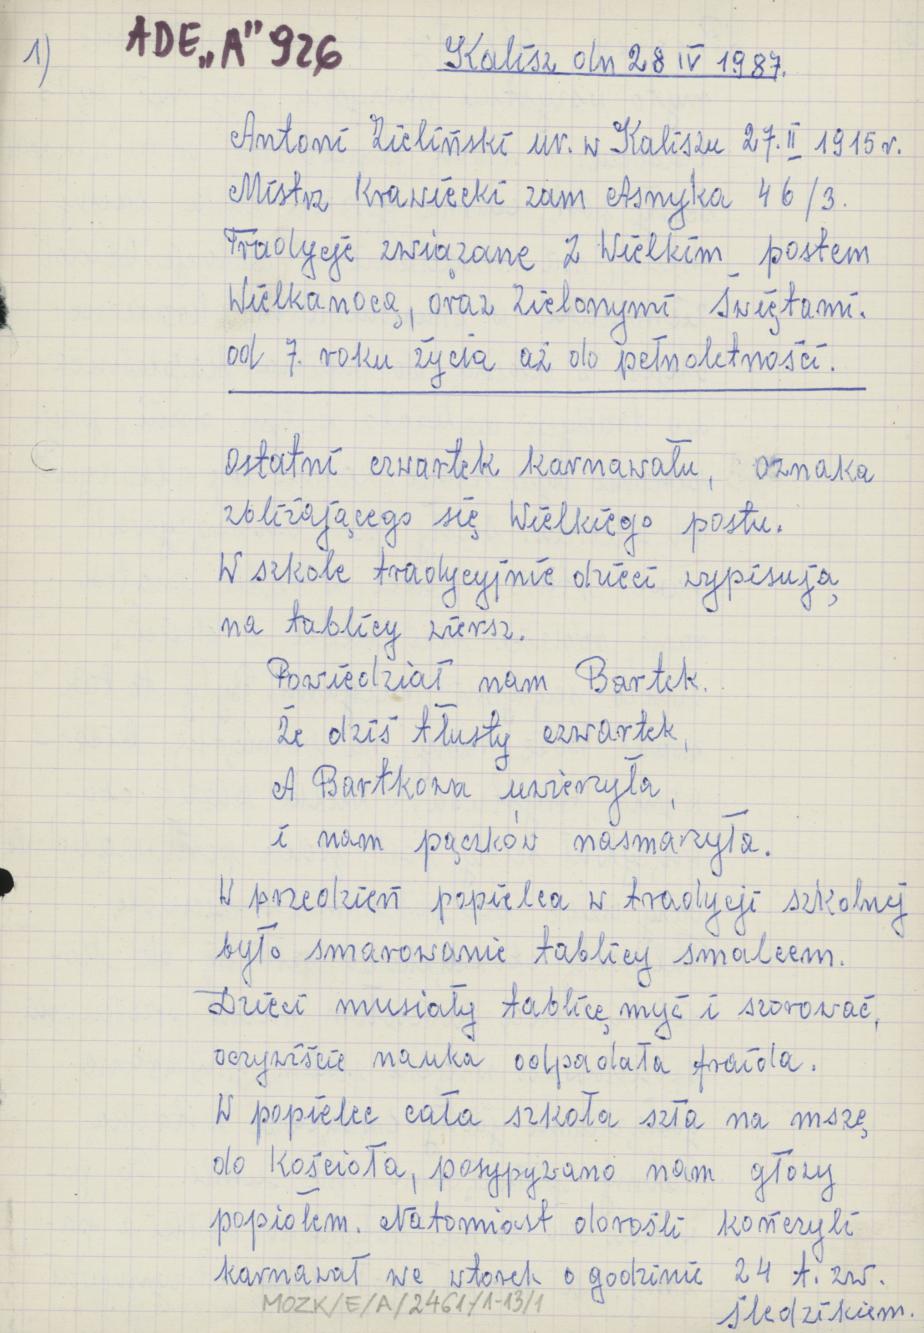 1)
ADE „A” 926
Kalisz dn 28 IV 1987.
Antoni Zieliński ur. w Kaliszu 27. II 1915 r.
Mistrz Krawiecki zam Asnyka 46/3.
Tradycje związane z Wielkim postem
Wielkanocą, oraz Zielonymi Świętami.
od 7. roku życia aż do pełnoletności.
Ostatni czwartek karnawału, oznaka
zbliżającego się Wielkiego postu.
W szkole tradycyjnie dzieci wypisują
na tablicy wiersz.
Powiedział nam Bartek.
Że dziś tłusty czwartek,
A Bartkowa uwierzyła,
i nam pączków nasmażyła.
W przedzień popielca w tradycji szkolnej
było smarowanie tablicy smalcem.
Dzieci musiały tablicę myć i szorować,
oczywiście nauka odpadała frajda.
W popielec cała szkoła szła na mszę
do Kościoła, posypywano nam głowy
popiołem. Natomiast dorośli kończyli
karnawał we wtorek o godzinie 24 t. zw.
śledzikiem.
MOZK/E/A/2461/1-13/1